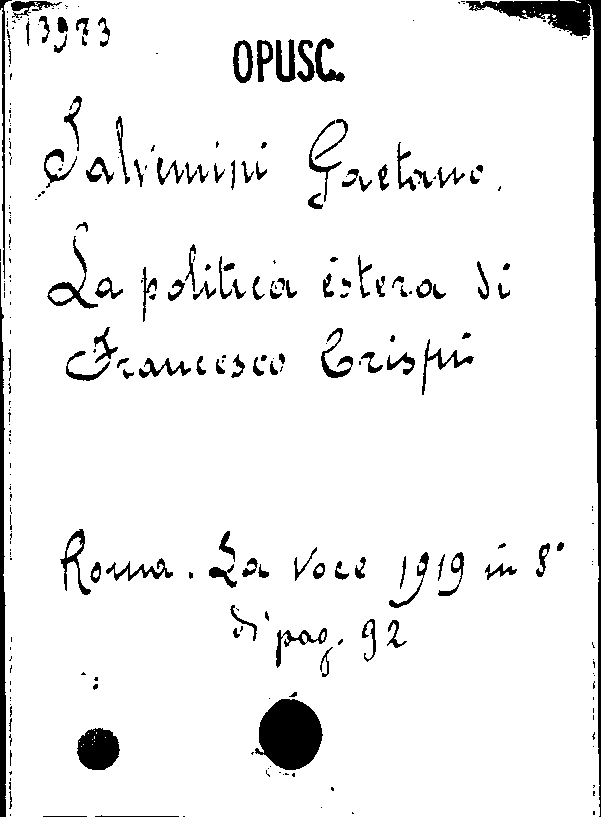 13973
OPUSC.
Salvemini Gaetano.
La politica estera di
Francesco Crispi
Roma. La Voce 1919 in 8°
di pag. 92